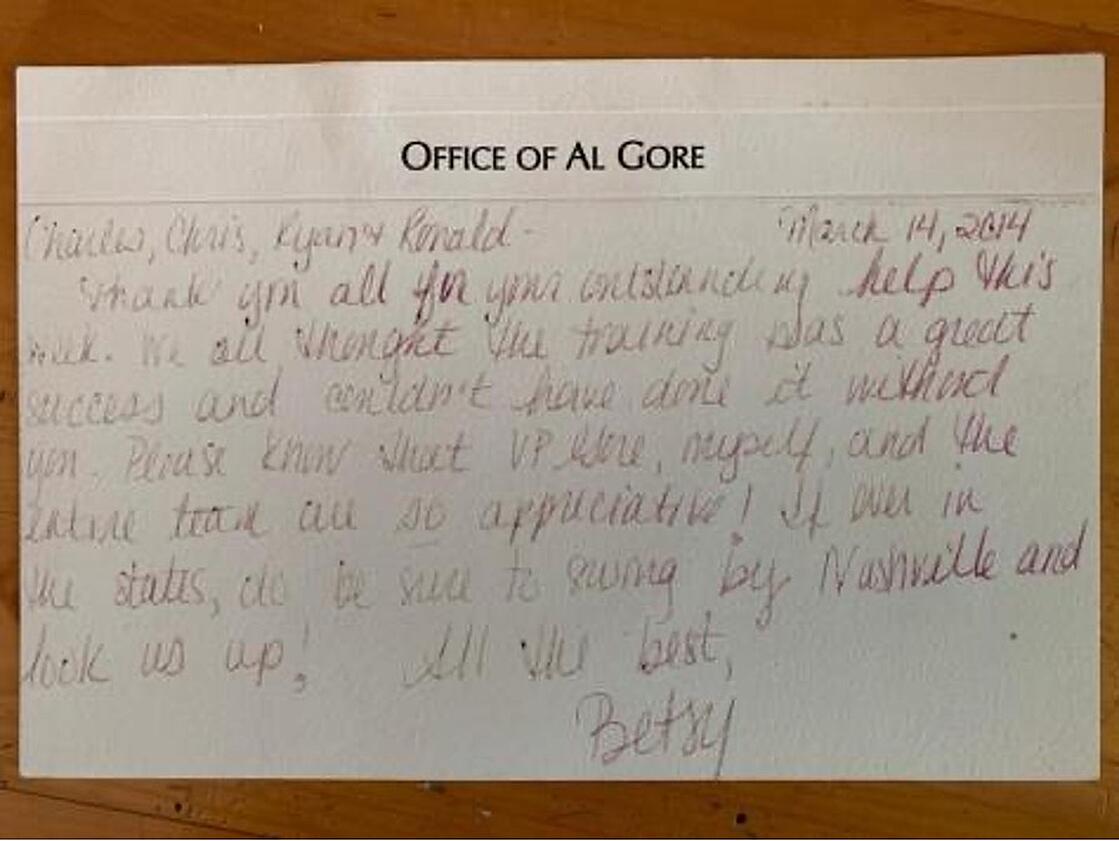 OFFICE OF AL GORE
Charles, Chris, Ryan & Ronald - March 14, 2014
Thank you all for your outstanding help this
week. We all thought the training was a great
success and couldn't have done it without
you. Please know that VP Gore, myself, and the
entire team are so appreciative! If ever in
the states, do be sure to swing by Nashville and
look us up! All the best,
Betsy